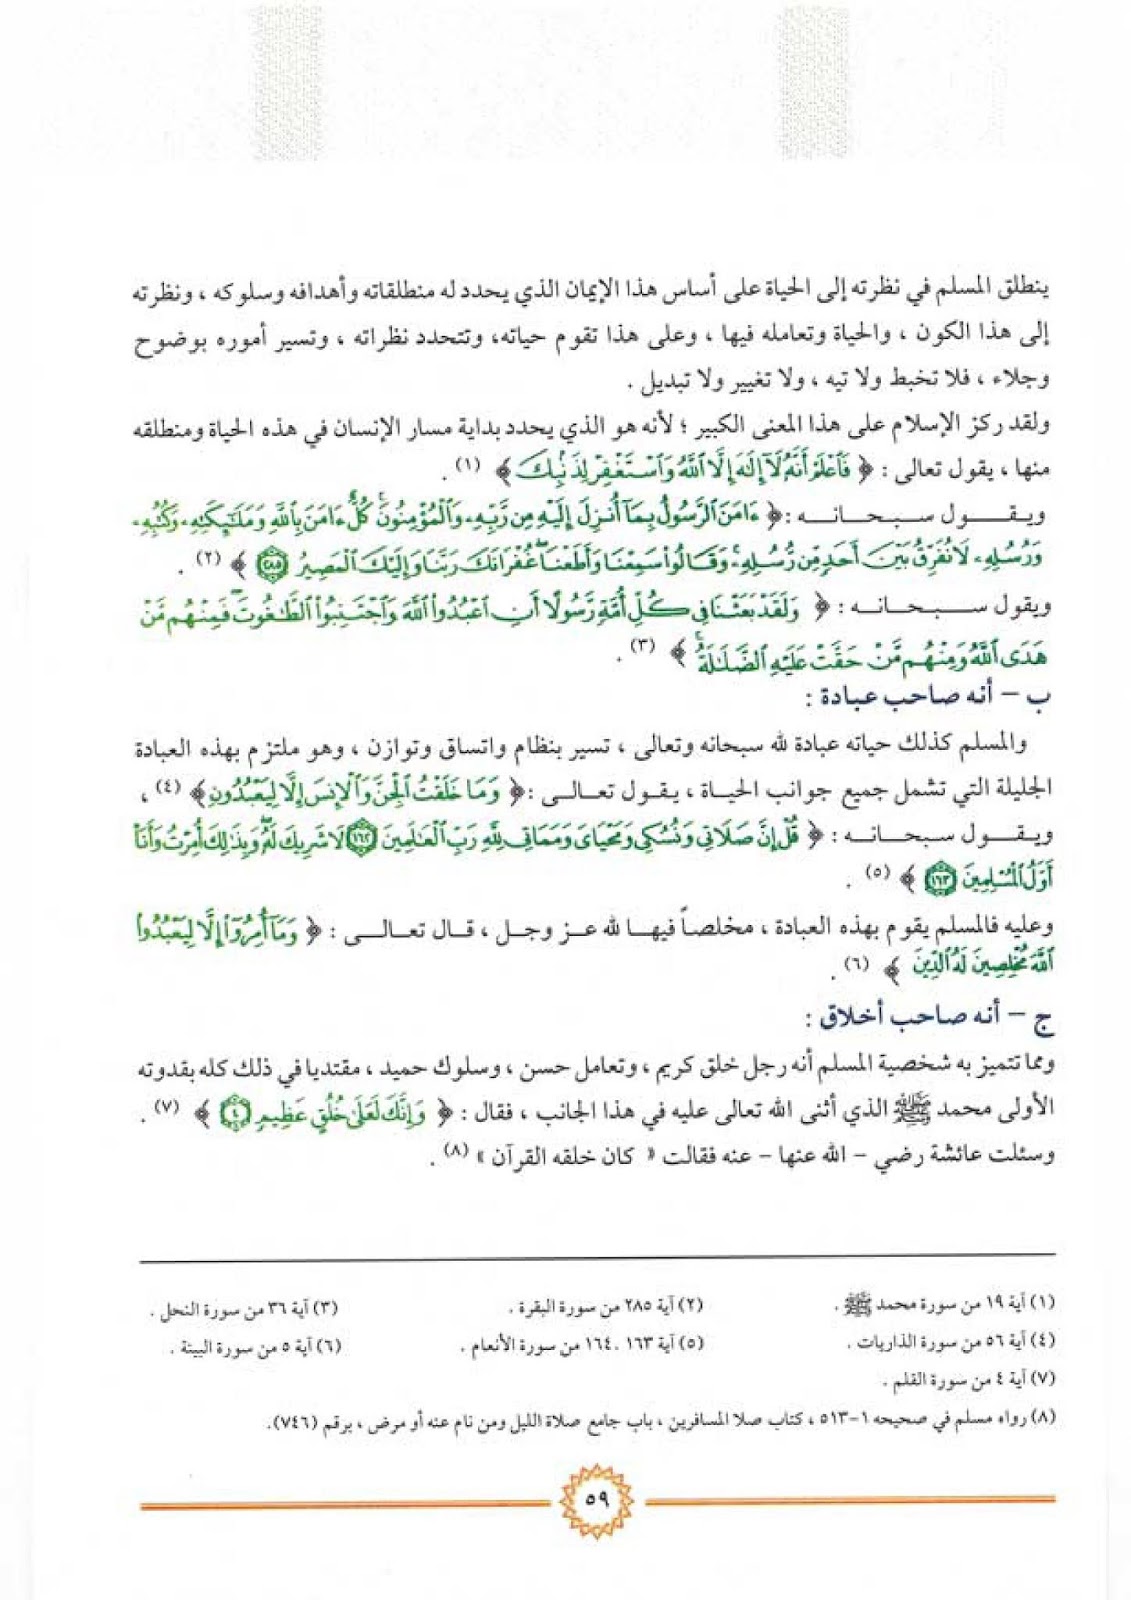 ينطلق المسلم في نظرته إلى الحياة على أساس هذا الإيمان الذي يحدد له منطلقاته وأهدافه وسلوكه ، ونظرته
إلى هذا الكون ، والحياة وتعامله فيها ، وعلى هذا تقوم حياته، وتتحدد نظراته ، وتسير أموره بوضوح
وجلاء ، فلا تخبط ولا تيه ، ولا تغيير ولا تبديل .
ولقد ركز الإسلام على هذا المعنى الكبير ؛ لأنه هو الذي يحدد بداية مسار الإنسان في هذه الحياة ومنطلقه
منها ، يقول تعالى : ﴿ فَٱعْلَمْ أَنَّهُۥ لَآ إِلَٰهَ إِلَّا ٱللَّهُ وَٱسْتَغْفِرْ لِذَنۢبِكَ ﴾ (١) .
ويقول سبحانه : ﴿ ءَامَنَ ٱلرَّسُولُ بِمَآ أُنزِلَ إِلَيْهِ مِن رَّبِّهِۦ وَٱلْمُؤْمِنُونَ ۚ كُلٌّ ءَامَنَ بِٱللَّهِ وَمَلَٰٓئِكَتِهِۦ وَكُتُبِهِۦ
وَرُسُلِهِۦ لَا نُفَرِّقُ بَيْنَ أَحَدٍ مِّن رُّسُلِهِۦ ۚ وَقَالُوا۟ سَمِعْنَا وَأَطَعْنَا ۖ غُفْرَانَكَ رَبَّنَا وَإِلَيْكَ ٱلْمَصِيرُ ٢٨٥ ﴾ (٢) .
ويقول سبحانه : ﴿ وَلَقَدْ بَعَثْنَا فِى كُلِّ أُمَّةٍ رَّسُولًا أَنِ ٱعْبُدُوا۟ ٱللَّهَ وَٱجْتَنِبُوا۟ ٱلطَّٰغُوتَ ۖ فَمِنْهُم مَّنْ
هَدَى ٱللَّهُ وَمِنْهُم مَّنْ حَقَّتْ عَلَيْهِ ٱلضَّلَٰلَةُ ۚ ﴾ (٣) .
ب – أنه صاحب عبادة :
والمسلم كذلك حياته عبادة لله سبحانه وتعالى ، تسير بنظام واتساق وتوازن ، وهو ملتزم بهذه العبادة
الجليلة التي تشمل جميع جوانب الحياة ، يقول تعالى : ﴿ وَمَا خَلَقْتُ ٱلْجِنَّ وَٱلْإِنسَ إِلَّا لِيَعْبُدُونِ ﴾ (٤) ،
ويقول سبحانه : ﴿ قُلْ إِنَّ صَلَاتِى وَنُسُكِى وَمَحْيَاىَ وَمَمَاتِى لِلَّهِ رَبِّ ٱلْعَٰلَمِينَ ١٦٢ لَا شَرِيكَ لَهُۥ ۖ وَبِذَٰلِكَ أُمِرْتُ وَأَنَا۠
أَوَّلُ ٱلْمُسْلِمِينَ ١٦٣ ﴾ (٥) .
وعليه فالمسلم يقوم بهذه العبادة ، مخلصاً فيها لله عز وجل ، قال تعالى : ﴿ وَمَآ أُمِرُوٓا۟ إِلَّا لِيَعْبُدُوا۟
ٱللَّهَ مُخْلِصِينَ لَهُ ٱلدِّينَ ﴾ (٦) .
ج – أنه صاحب أخلاق :
ومما تتميز به شخصية المسلم أنه رجل خلق كريم ، وتعامل حسن ، وسلوك حميد ، مقتديا في ذلك كله بقدوته
الأولى محمد ﷺ الذي أثنى الله تعالى عليه في هذا الجانب ، فقال : ﴿ وَإِنَّكَ لَعَلَىٰ خُلُقٍ عَظِيمٍ ٤ ﴾ (٧) .
وسئلت عائشة رضي – الله عنها – عنه فقالت « كان خلقه القرآن » (٨) .
(١) آية ١٩ من سورة محمد ﷺ . (٢) آية ٢٨٥ من سورة البقرة . (٣) آية ٣٦ من سورة النحل .
(٤) آية ٥٦ من سورة الذاريات . (٥) آية ١٦٣ ،١٦٤ من سورة الأنعام . (٦) آية ٥ من سورة البينة .
(٧) آية ٤ من سورة القلم .
(٨) رواه مسلم في صحيحه ١-٥١٣ ، كتاب صلا المسافرين ، باب جامع صلاة الليل ومن نام عنه أو مرض ، برقم (٧٤٦).
٥٩